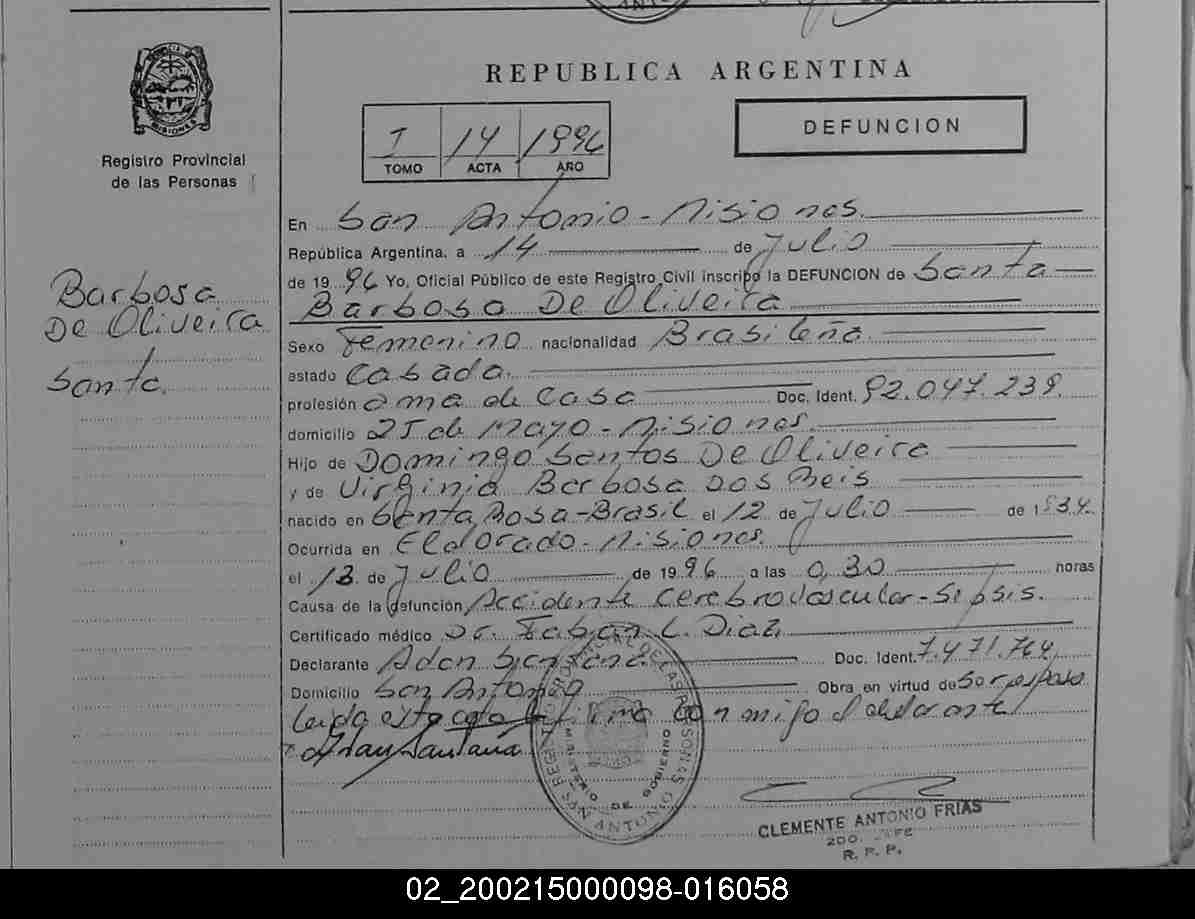 MISIONES
Registro Provincial
de las Personas
Barbosa
De Oliveira
Santa.
REPUBLICA ARGENTINA
I 14 1996
TOMO ACTA AÑO
DEFUNCION
En San Antonio - Misiones.
República Argentina, a 14 de Julio
de 19 96 Yo, Oficial Público de este Registro Civil inscribo la DEFUNCION de Santa
Barbosa De Oliveira
Sexo Femenino nacionalidad Brasileña
estado Casada.
profesión ama de Casa Doc. Ident. 92.047.239.
domicilio 25 de Mayo - Misiones.
Hijo de Domingo Santos De Oliveira
y de Virginia Barbosa dos Reis
nacido en Santa Rosa - Brasil el 12 de Julio de 1934
Ocurrida en Eldorado - Misiones.
el 13 de Julio de 19 96 a las 0,30 horas
Causa de la defunción Accidente Cerebrovascular - Sepsis.
Certificado médico Dr. Fabian L. Diaz
Declarante Adan Santana Doc. Ident. 7.471.764
Domicilio San Antonio Obra en virtud de Ser esposo
Leida esta acta firma conmigo el declarante
Adan Santana
REGISTRO PROVINCIAL DE LAS PERSONAS
MINISTERIO DE GOBIERNO
SAN ANTONIO
CLEMENTE ANTONIO FRIAS
2DO. JEFE
R. P. P.
02_200215000098-016058